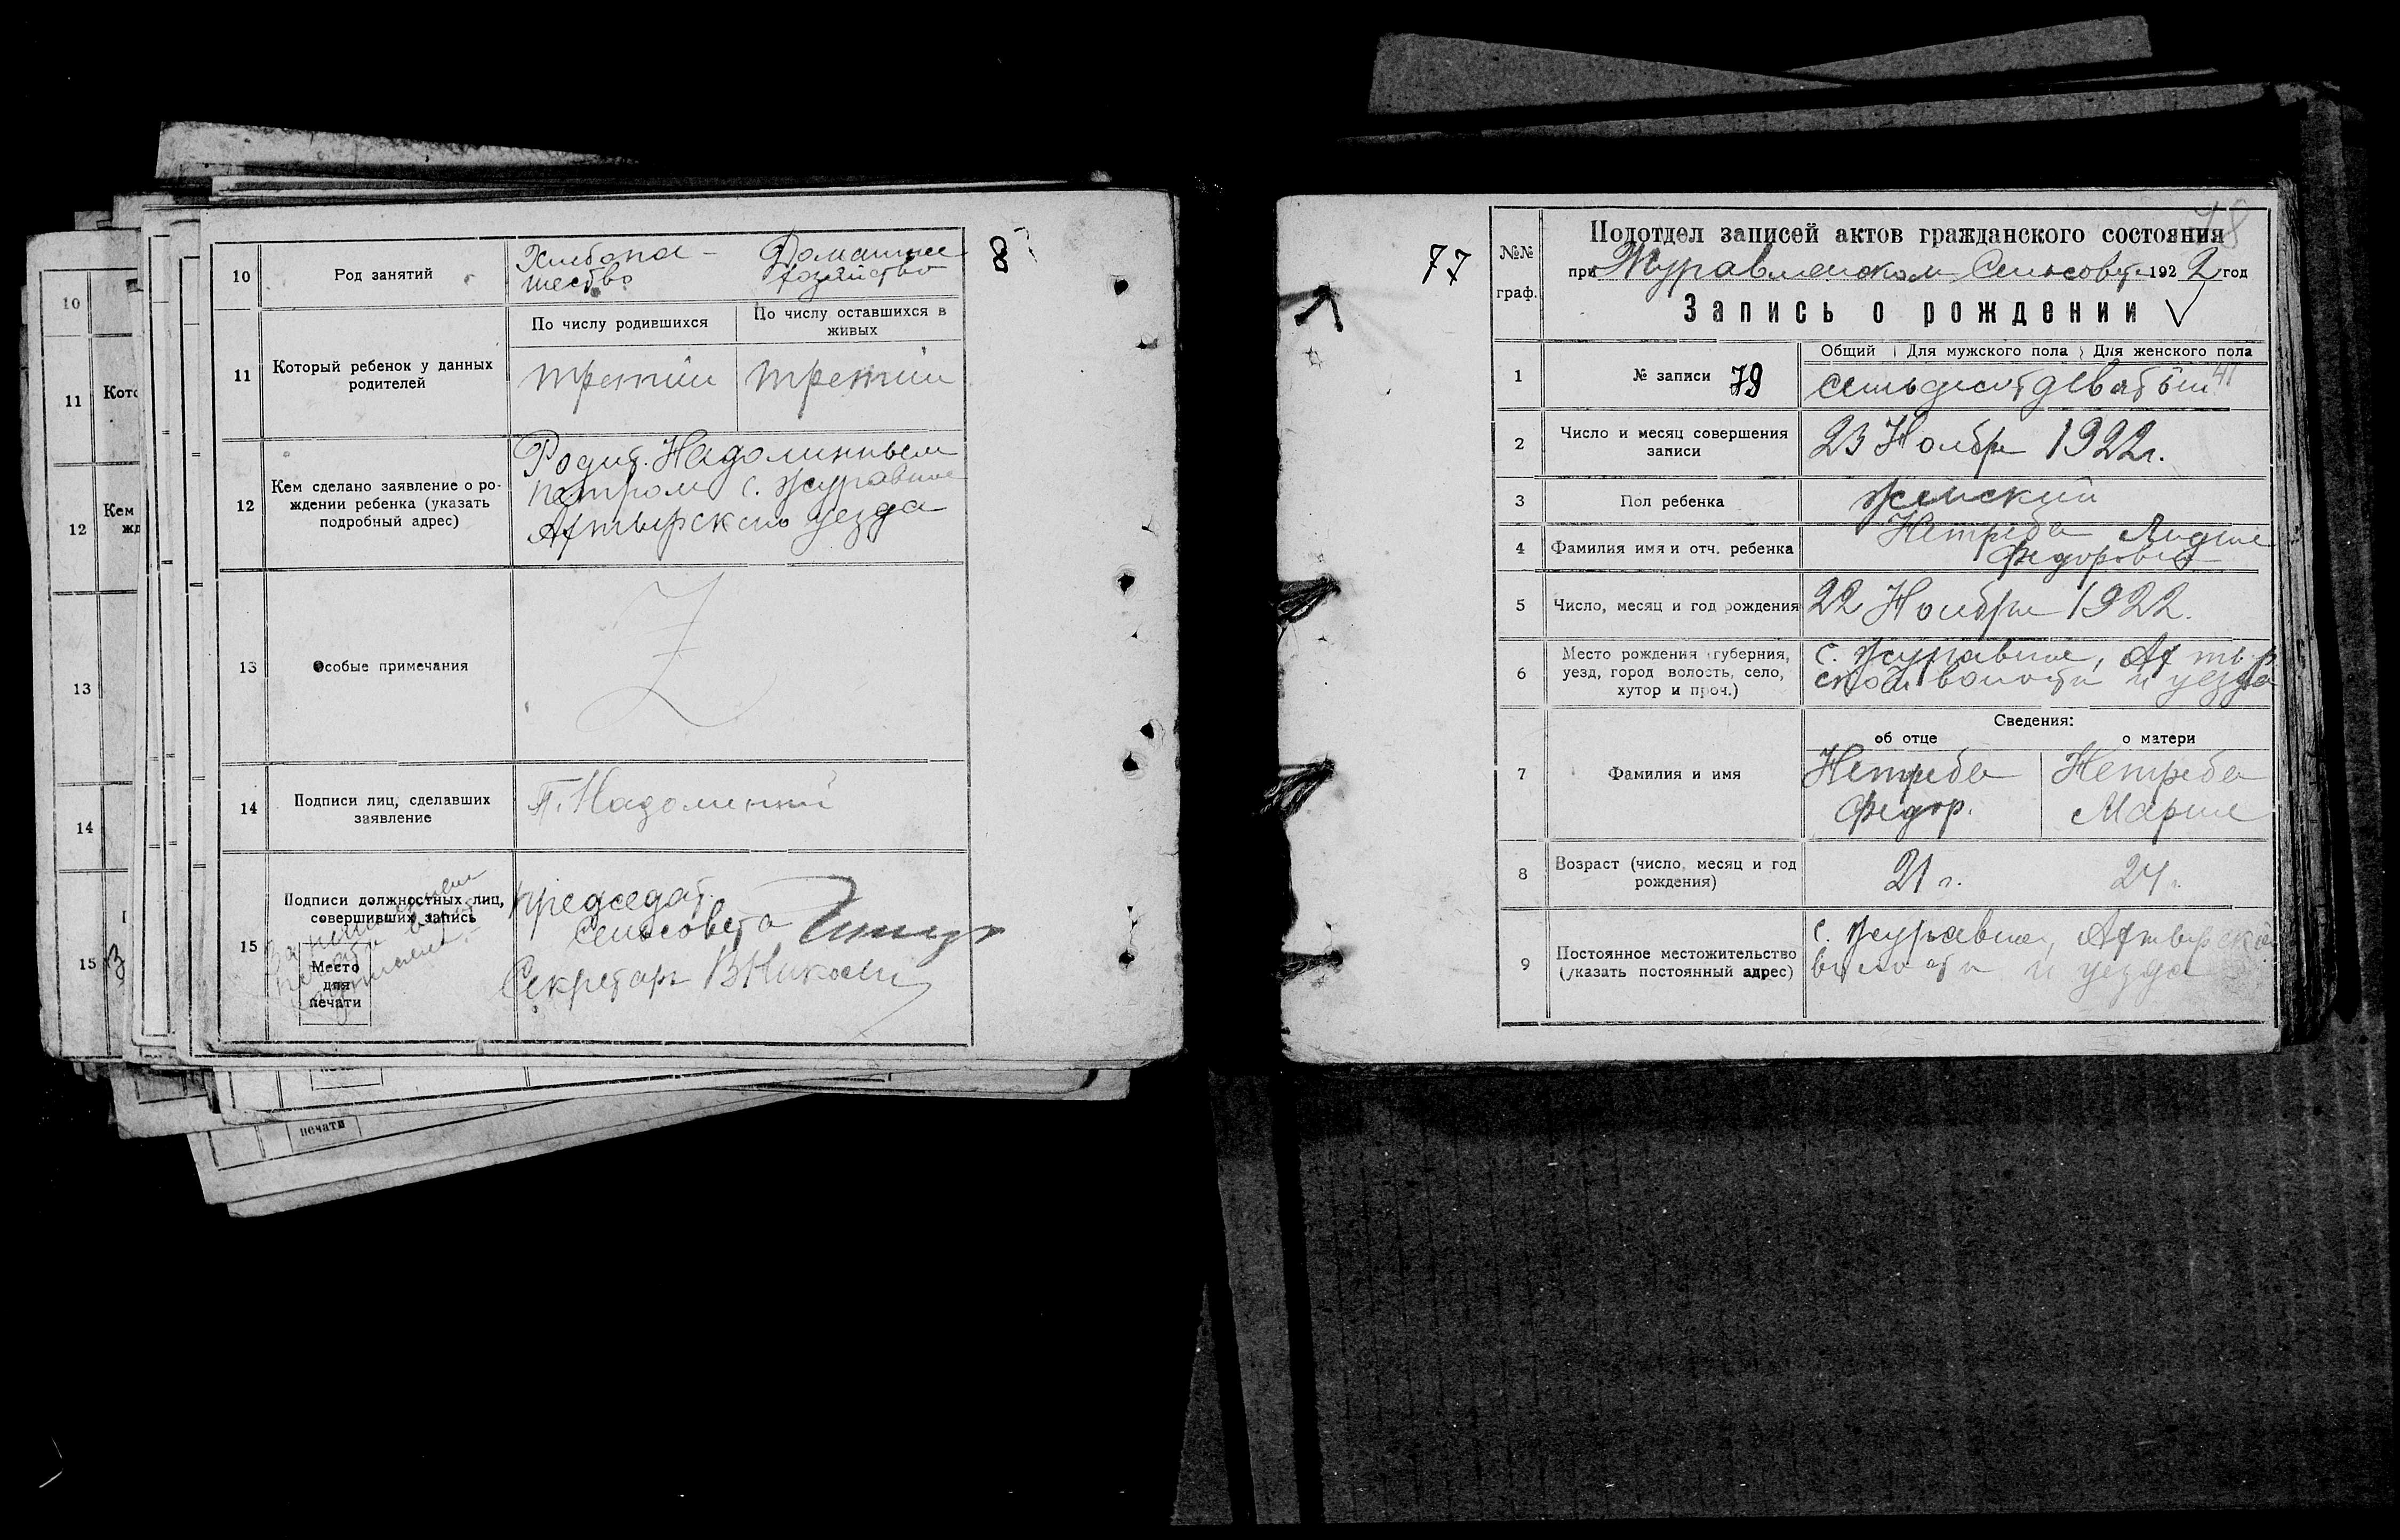 10
11
Кото
12
Кем
жд
13
14
15
10
Род занятий
Хлебопа-
шество
Домашнее
хозяйство
8
11
Который ребенок у данных
родителей
По числу родившихся
По числу оставшихся в
живых
третий
третий
12
Кем сделано заявление о ро-
ждении ребенка (указать
подробный адрес)
Родит. Надолинным
Петром с. Журавное
Ахтырского уезда
13
Особые примечания
Z
14
Подписи лиц, сделавших
заявление
П. Надолинний
15
Подписи должностных лиц,
совершивших запись
Место
для
печати
Председат.
Сельсовета
Секретарь
печати
77
78
№№
граф.
Подотдел записей актов гражданского состояния
при Журавленском Сельсовете 1922 год
Запись о рождении
1
№ записи 79
Общий
Для мужского пола
Для женского пола
семьдесят девятый
41
2
Число и месяц совершения
записи
23 Ноября 1922г.
3
Пол ребенка
женский
4
Фамилия имя и отч. ребенка
Нетреба Лидия
Федоровна
5
Число, месяц и год рождения
22 Ноября 1922.
6
Место рождения (губерния,
уезд, город волость, село,
хутор и проч.)
с. Журавное, Ахтыр
ской волости и уезда
Сведения:
об отце
о матери
7
Фамилия и имя
Нетреба
Федор.
Нетреба
Мария
8
Возраст (число, месяц и год
рождения)
21 г.
24 г.
9
Постоянное местожительство
(указать постоянный адрес)
с. Журавное, Ахтырской
волости и уезда